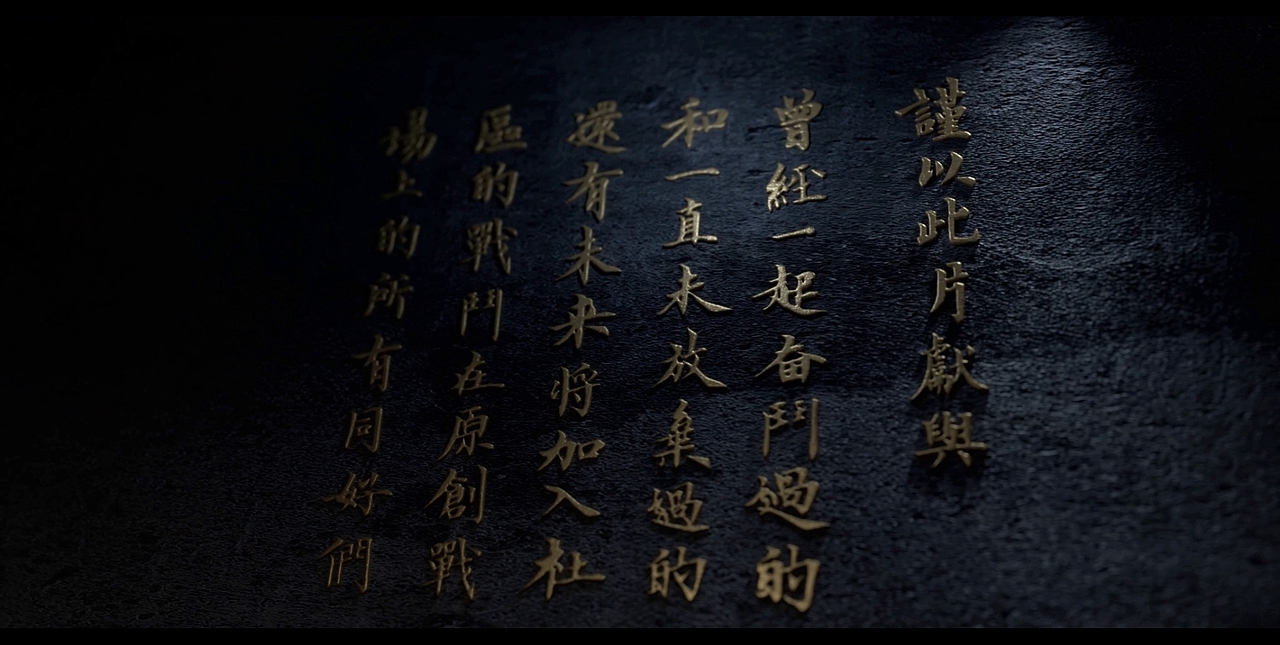 謹以此片獻與
曾經一起奋鬥過的
和一直未放棄過的
還有未来将加入杜
區的戰鬥在原創戰
場上的所有同好們